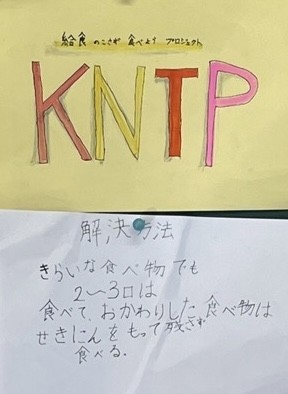 給食 のこさず 食べよう プロジェクト
KNTP
解決方法
きらいな食べ物でも
2〜3口は
食べて、おかわりした食べ物は
せきにんをもって残さず
食べる.